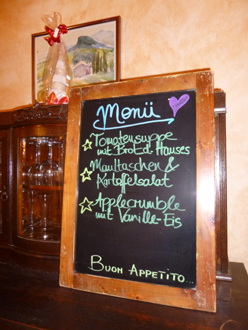 Menü
Tomatensuppe
mit Brot d. Hauses
Maultaschen &
Kartoffelsalat
Applecrumble
mit Vanille-Eis
BUON APPETITO...